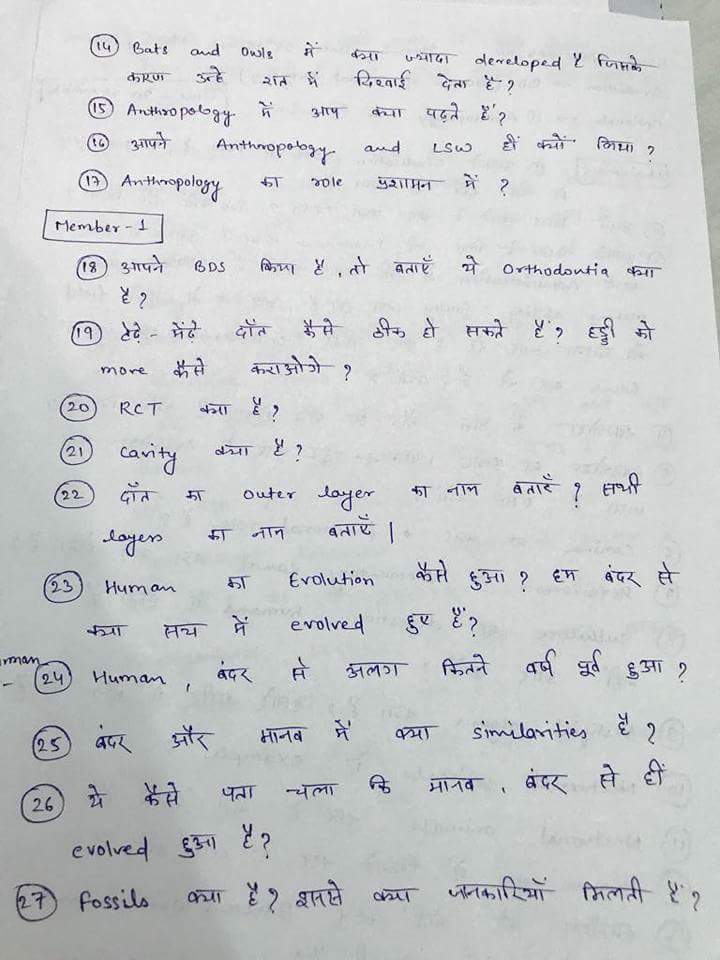 (14) Bats and Owls में क्या ज्यादा developed है जिसके
कारण उन्हे रात में दिखाई देता है?
(15) Anthropology में आप क्या पढ़ते हैं?
(16) आपने Anthropology and LSW हीं क्यों लिया?
(17) Anthropology का role प्रशासन में ?
Member-1
(18) आपने BDS किया है, तो बताएँ ये Orthodontia क्या
है?
(19) टेढ़े-मेंढ़े दाँत कैसे ठीक हो सकते हैं? हड्डी को
more कैसे कराओगे ?
(20) RCT क्या है?
(21) Cavity क्या है?
(22) दाँत का outer layer का नाम बताएँ? सभी
layers का नाम बताएँ|
(23) Human का Evolution कैसे हुआ? हम बंदर से
क्या सच में evolved हुए हैं?
(24) Human, बंदर से अलग कितने वर्ष पूर्व हुआ?
(25) बंदर और मानव में क्या similarities है?
(26) ये कैसे पता चला कि मानव, बंदर से हीं
evolved हुआ है?
(27) Fossils क्या है? इनसे क्या जानकारियाँ मिलती हैं?